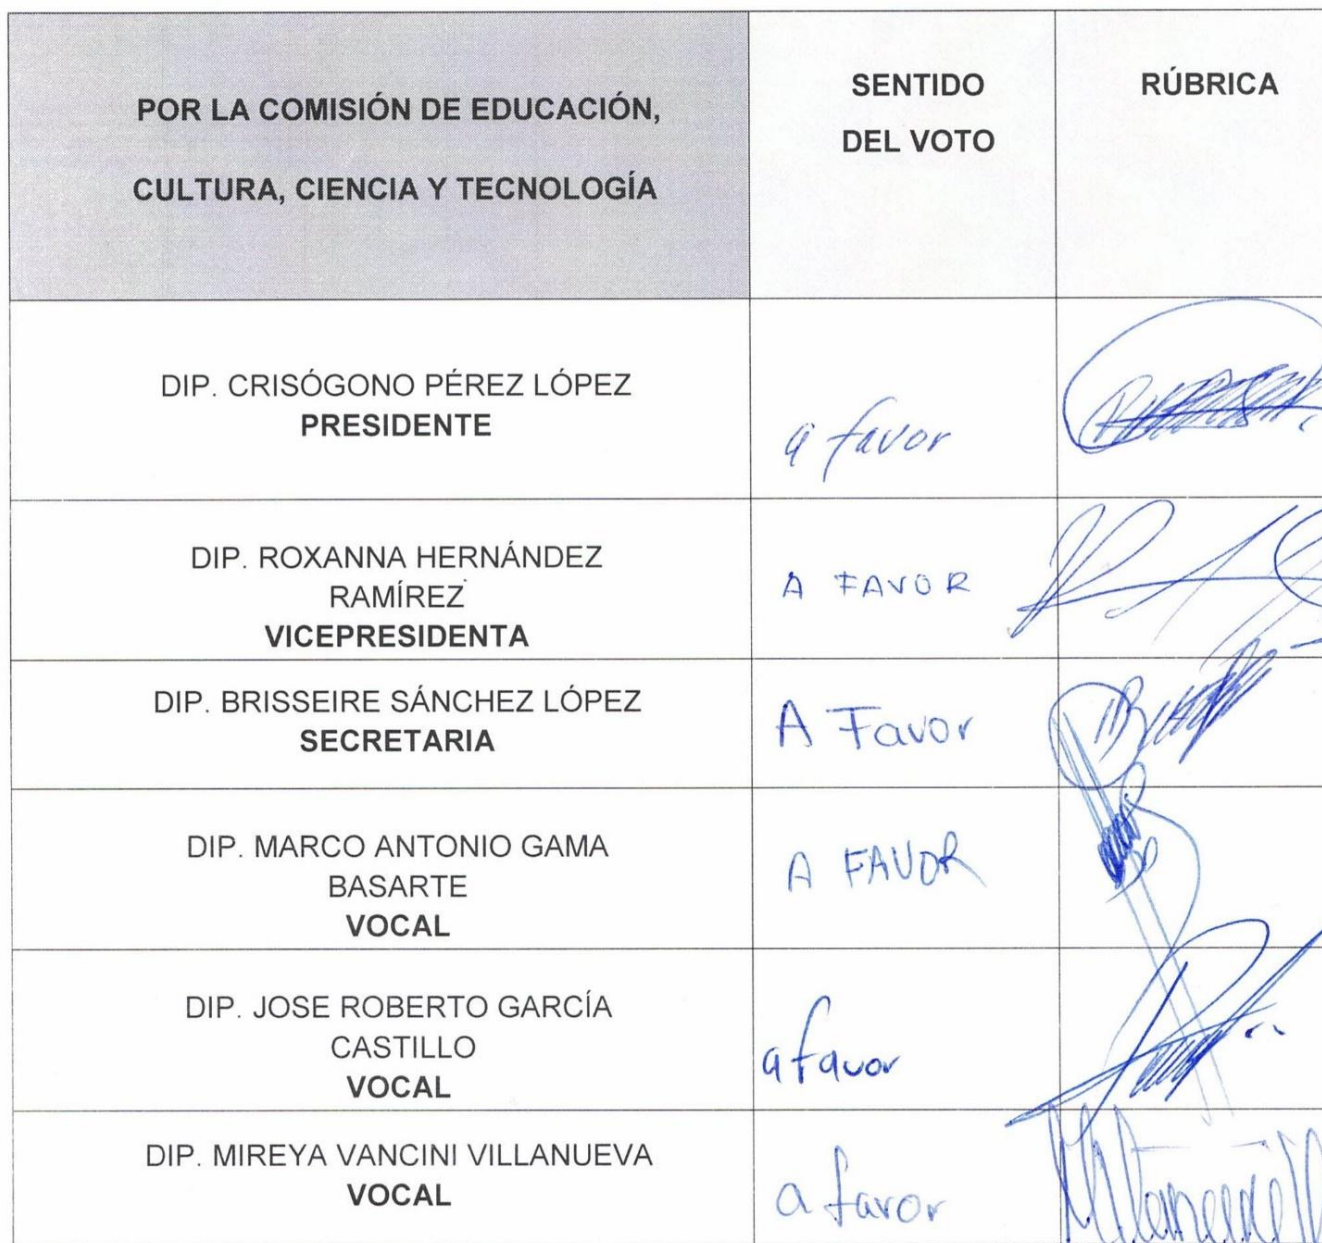 POR LA COMISIÓN DE EDUCACIÓN,
CULTURA, CIENCIA Y TECNOLOGÍA
SENTIDO
DEL VOTO
RÚBRICA
DIP. CRISÓGONO PÉREZ LÓPEZ
PRESIDENTE
a favor
DIP. ROXANNA HERNÁNDEZ
RAMÍREZ
VICEPRESIDENTA
A FAVOR
DIP. BRISSEIRE SÁNCHEZ LÓPEZ
SECRETARIA
A Favor
DIP. MARCO ANTONIO GAMA
BASARTE
VOCAL
A FAVOR
DIP. JOSE ROBERTO GARCÍA
CASTILLO
VOCAL
a favor
DIP. MIREYA VANCINI VILLANUEVA
VOCAL
a favor